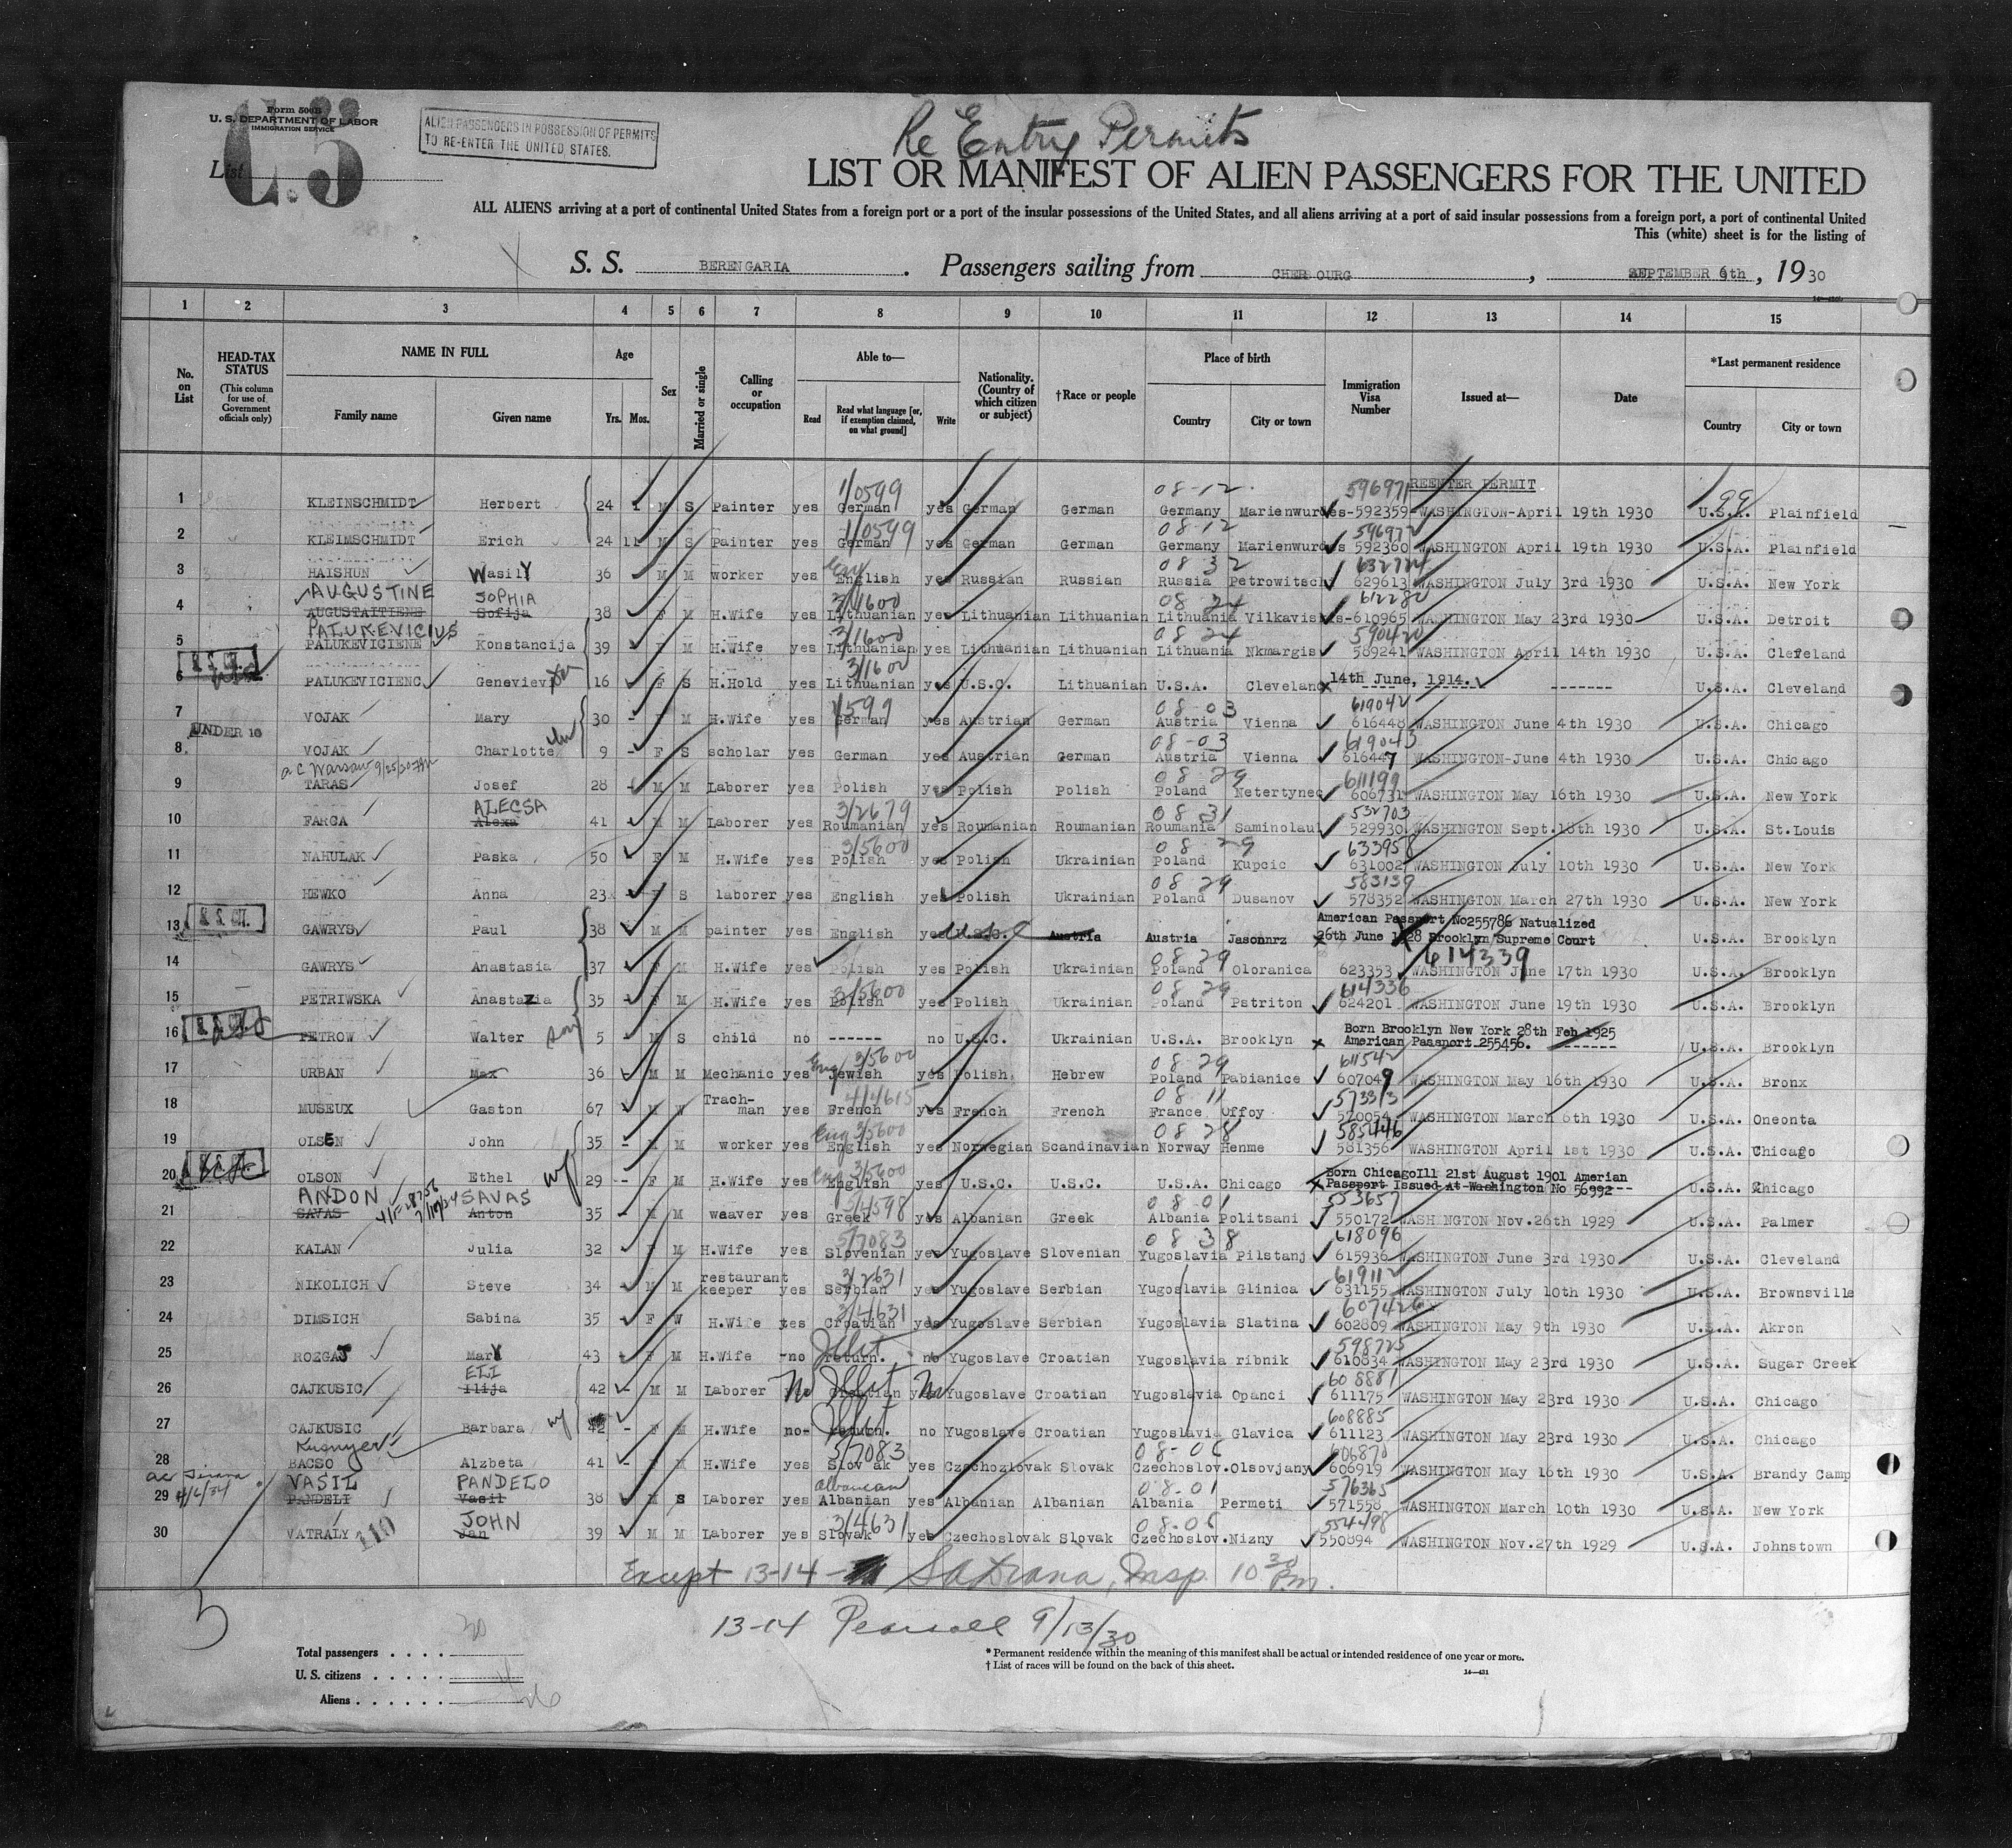 Form 500B
U. S. DEPARTMENT OF LABOR
IMMIGRATION SERVICE
List
C.5
ALIEN PASSENGERS IN POSSESSION OF PERMITS
TO RE-ENTER THE UNITED STATES.
Re Entry Permits
LIST OR MANIFEST OF ALIEN PASSENGERS FOR THE UNITED
ALL ALIENS arriving at a port of continental United States from a foreign port or a port of the insular possessions of the United States, and all aliens arriving at a port of said insular possessions from a foreign port, a port of continental United
This (white) sheet is for the listing of
S. S. BERENGARIA. Passengers sailing from CHERBOURG, SEPTEMBER 6th, 1930
1 2 3 4 5 6 7 8 9 10 11 12 13 14 15
No. on List
HEAD-TAX STATUS (This column for use of Government officials only)
NAME IN FULL
Family name
Given name
Age
Yrs. Mos.
Sex
Married or single
Calling or occupation
Able to—
Read
Read what language [or, if exemption claimed, on what ground]
Write
Nationality. (Country of which citizen or subject)
†Race or people
Place of birth
Country
City or town
Immigration Visa Number
Issued at—
Date
*Last permanent residence
Country
City or town
REENTER PERMIT
1/0599 08-12 596971 99
1 KLEINSCHMIDT Herbert 24 1 M S Painter yes German yes German German Germany Marienwurdes-592359-WASHINGTON-April 19th 1930 U.S.A. Plainfield
1/0599 08-12 596972
2 KLEIMSCHMIDT Erich 24 11 M S Painter yes German yes German German Germany Marienwurdes 592360 WASHINGTON April 19th 1930 U.S.A. Plainfield
Eng 08 32 632724
3 HAISHUN WasilY 36 M M worker yes English yes Russian Russian Russia Petrowitsch 629613 WASHINGTON July 3rd 1930 U.S.A. New York
AUGUSTINE SOPHIA 3/1600 08 24 612280
4 AUGUSTAITIENE Sofija 38 F M H.Wife yes Lithuanian yes Lithuanian Lithuanian Lithuania Vilkaviskis-610965 WASHINGTON May 23rd 1930 U.S.A. Detroit
PALUKEVICIUS 3/1600 08 24 590420
5 PALUKEVICIENE Konstancija 39 F M H.Wife yes Lithuanian yes Lithuanian Lithuanian Lithuania Nkmargis 589241 WASHINGTON April 14th 1930 U.S.A. Clefeland
3/1600
6 PALUKEVICIENC Genevievi 16 F S H.Hold yes Lithuanian yes U.S.C. Lithuanian U.S.A. Cleveland 14th June, 1914. ------- U.S.A. Cleveland
1/599 08-03 619042
7 VOJAK Mary 30 - F M H.Wife yes German yes Austrian German Austria Vienna 616448 WASHINGTON June 4th 1930 U.S.A. Chicago
UNDER 16
08-03 619043
8 VOJAK Charlotte 9 - F S scholar yes German yes Austrian German Austria Vienna 616447 WASHINGTON-June 4th 1930 U.S.A. Chicago
a c Warsaw 9/25/30
08 29 611199
9 TARAS Josef 28 - M M Laborer yes Polish yes Polish Polish Poland Netertynec 606731 WASHINGTON May 16th 1930 U.S.A. New York
ALECSA 3/2679 08 31 532703
10 FARCA Alexa 41 M M Laborer yes Roumanian yes Roumanian Roumanian Roumania Saminolaul 529930 WASHINGTON Sept.18th 1930 U.S.A. St.Louis
3/5600 08-29 633958
11 NAHULAK Paska 50 F M H.Wife yes Polish yes Polish Ukrainian Poland Kupcic 631002 WASHINGTON July 10th 1930 U.S.A. New York
08 29 583139
12 HEWKO Anna 23 F S laborer yes English yes Polish Ukrainian Poland Dusanov 578352 WASHINGTON March 27th 1930 U.S.A. New York
American Passport No255786 Natualized
13 GAWRYS Paul 38 M M painter yes English yes U.S.C. Austria Austria Jasonnrz 26th June 1928 Brooklyn Supreme Court U.S.A. Brooklyn
08 29 614339
14 GAWRYS Anastasia 37 F M H.Wife yes Polish yes Polish Ukrainian Poland Oloranica 623353 WASHINGTON June 17th 1930 U.S.A. Brooklyn
3/5600 08 29 614336
15 PETRIWSKA Anastazia 35 F M H.Wife yes Polish yes Polish Ukrainian Poland Pstriton 624201 WASHINGTON June 19th 1930 U.S.A. Brooklyn
son Born Brooklyn New York 28th Feb 1925
16 PETROW Walter 5 M S child no ------ no U.S.C. Ukrainian U.S.A. Brooklyn American Passport 255456. ------- U.S.A. Brooklyn
Eng 3/5600 08-29 611542
17 URBAN Max 36 M M Mechanic yes Jewish yes Polish Hebrew Poland Pabianice 607049 WASHINGTON May 16th 1930 U.S.A. Bronx
4/4615 08 11 573313
18 MUSEUX Gaston 67 M W Trach-man yes French yes French French France Offoy 570054 WASHINGTON March 6th 1930 U.S.A. Oneonta
Eng 3/5600 08 28 585446
19 OLSEN John 35 - M M worker yes English yes Norwegian Scandinavian Norway Henme 581356 WASHINGTON April 1st 1930 U.S.A. Chicago
Eng 3/5600 Born ChicagoIll 21st August 1901 Amerian
20 OLSON Ethel wf 29 - F M H.Wife yes English yes U.S.C. U.S.C. U.S.A. Chicago Passport Issued At Washington No 56992--- U.S.A. Chicago
ANDON SAVAS 3/4598 08-01 553657
21 SAVAS Anton 35 - M M weaver yes Greek yes Albanian Greek Albania Politsani 550172 WASHINGTON Nov.26th 1929 U.S.A. Palmer
5/7083 08 38 618096
22 KALAN Julia 32 F M H.Wife yes Slovenian yes Yugoslave Slovenian Yugoslavia Pilstanj 615936 WASHINGTON June 3rd 1930 U.S.A. Cleveland
3/2631 619112
23 NIKOLICH Steve 34 M M restaurant keeper yes Serbian yes Yugoslave Serbian Yugoslavia Glinica 631155 WASHINGTON July 10th 1930 U.S.A. Brownsville
3/4631 607426
24 DIMSICH Sabina 35 F W H.Wife yes Croatian yes Yugoslave Serbian Yugoslavia Slatina 602809 WASHINGTON May 9th 1930 U.S.A. Akron
Illit 598725
25 ROZGAJ MarY 43 F M H.Wife -no return. no Yugoslave Croatian Yugoslavia ribnik 610834 WASHINGTON May 23rd 1930 U.S.A. Sugar Creek
ELI No Illit No 608881
26 CAJKUSIC Ilija 42 - M M Laborer yes Croatian yes Yugoslave Croatian Yugoslavia Opanci 611175 WASHINGTON May 23rd 1930 U.S.A. Chicago
Illit 608885
27 CAJKUSIC Barbara wf 42 - F M H.Wife no- return. no Yugoslave Croatian Yugoslavia Glavica 611123 WASHINGTON May 23rd 1930 U.S.A. Chicago
Kusnyer 5/7083 08-06 606870
28 BACSO Alzbeta 41 - F M H.Wife yes Slov ak yes Czechozlovak Slovak Czechoslov.Olsovjany 606919 WASHINGTON May 16th 1930 U.S.A. Brandy Camp
ac Tirana 4/6/34 VASIL PANDELO Albanian 08-01 576365
29 PANDELI Vasil 38 M S Laborer yes Albanian yes Albanian Albanian Albania Permeti 571558 WASHINGTON March 10th 1930 U.S.A. New York
JOHN 3/4631 08-06 554498
30 VATRALY 110 Jan 39 M M Laborer yes Slovak yes Czechoslovak Slovak Czechoslov.Nizny 550894 WASHINGTON Nov.27th 1929 U.S.A. Johnstown
Except 13-14 Insp. 10 30 P.m.
13-14 9/13/30
Total passengers . . . . 30
U. S. citizens . . . . . 4
Aliens . . . . . . 26
* Permanent residence within the meaning of this manifest shall be actual or intended residence of one year or more.
† List of races will be found on the back of this sheet.
14—431